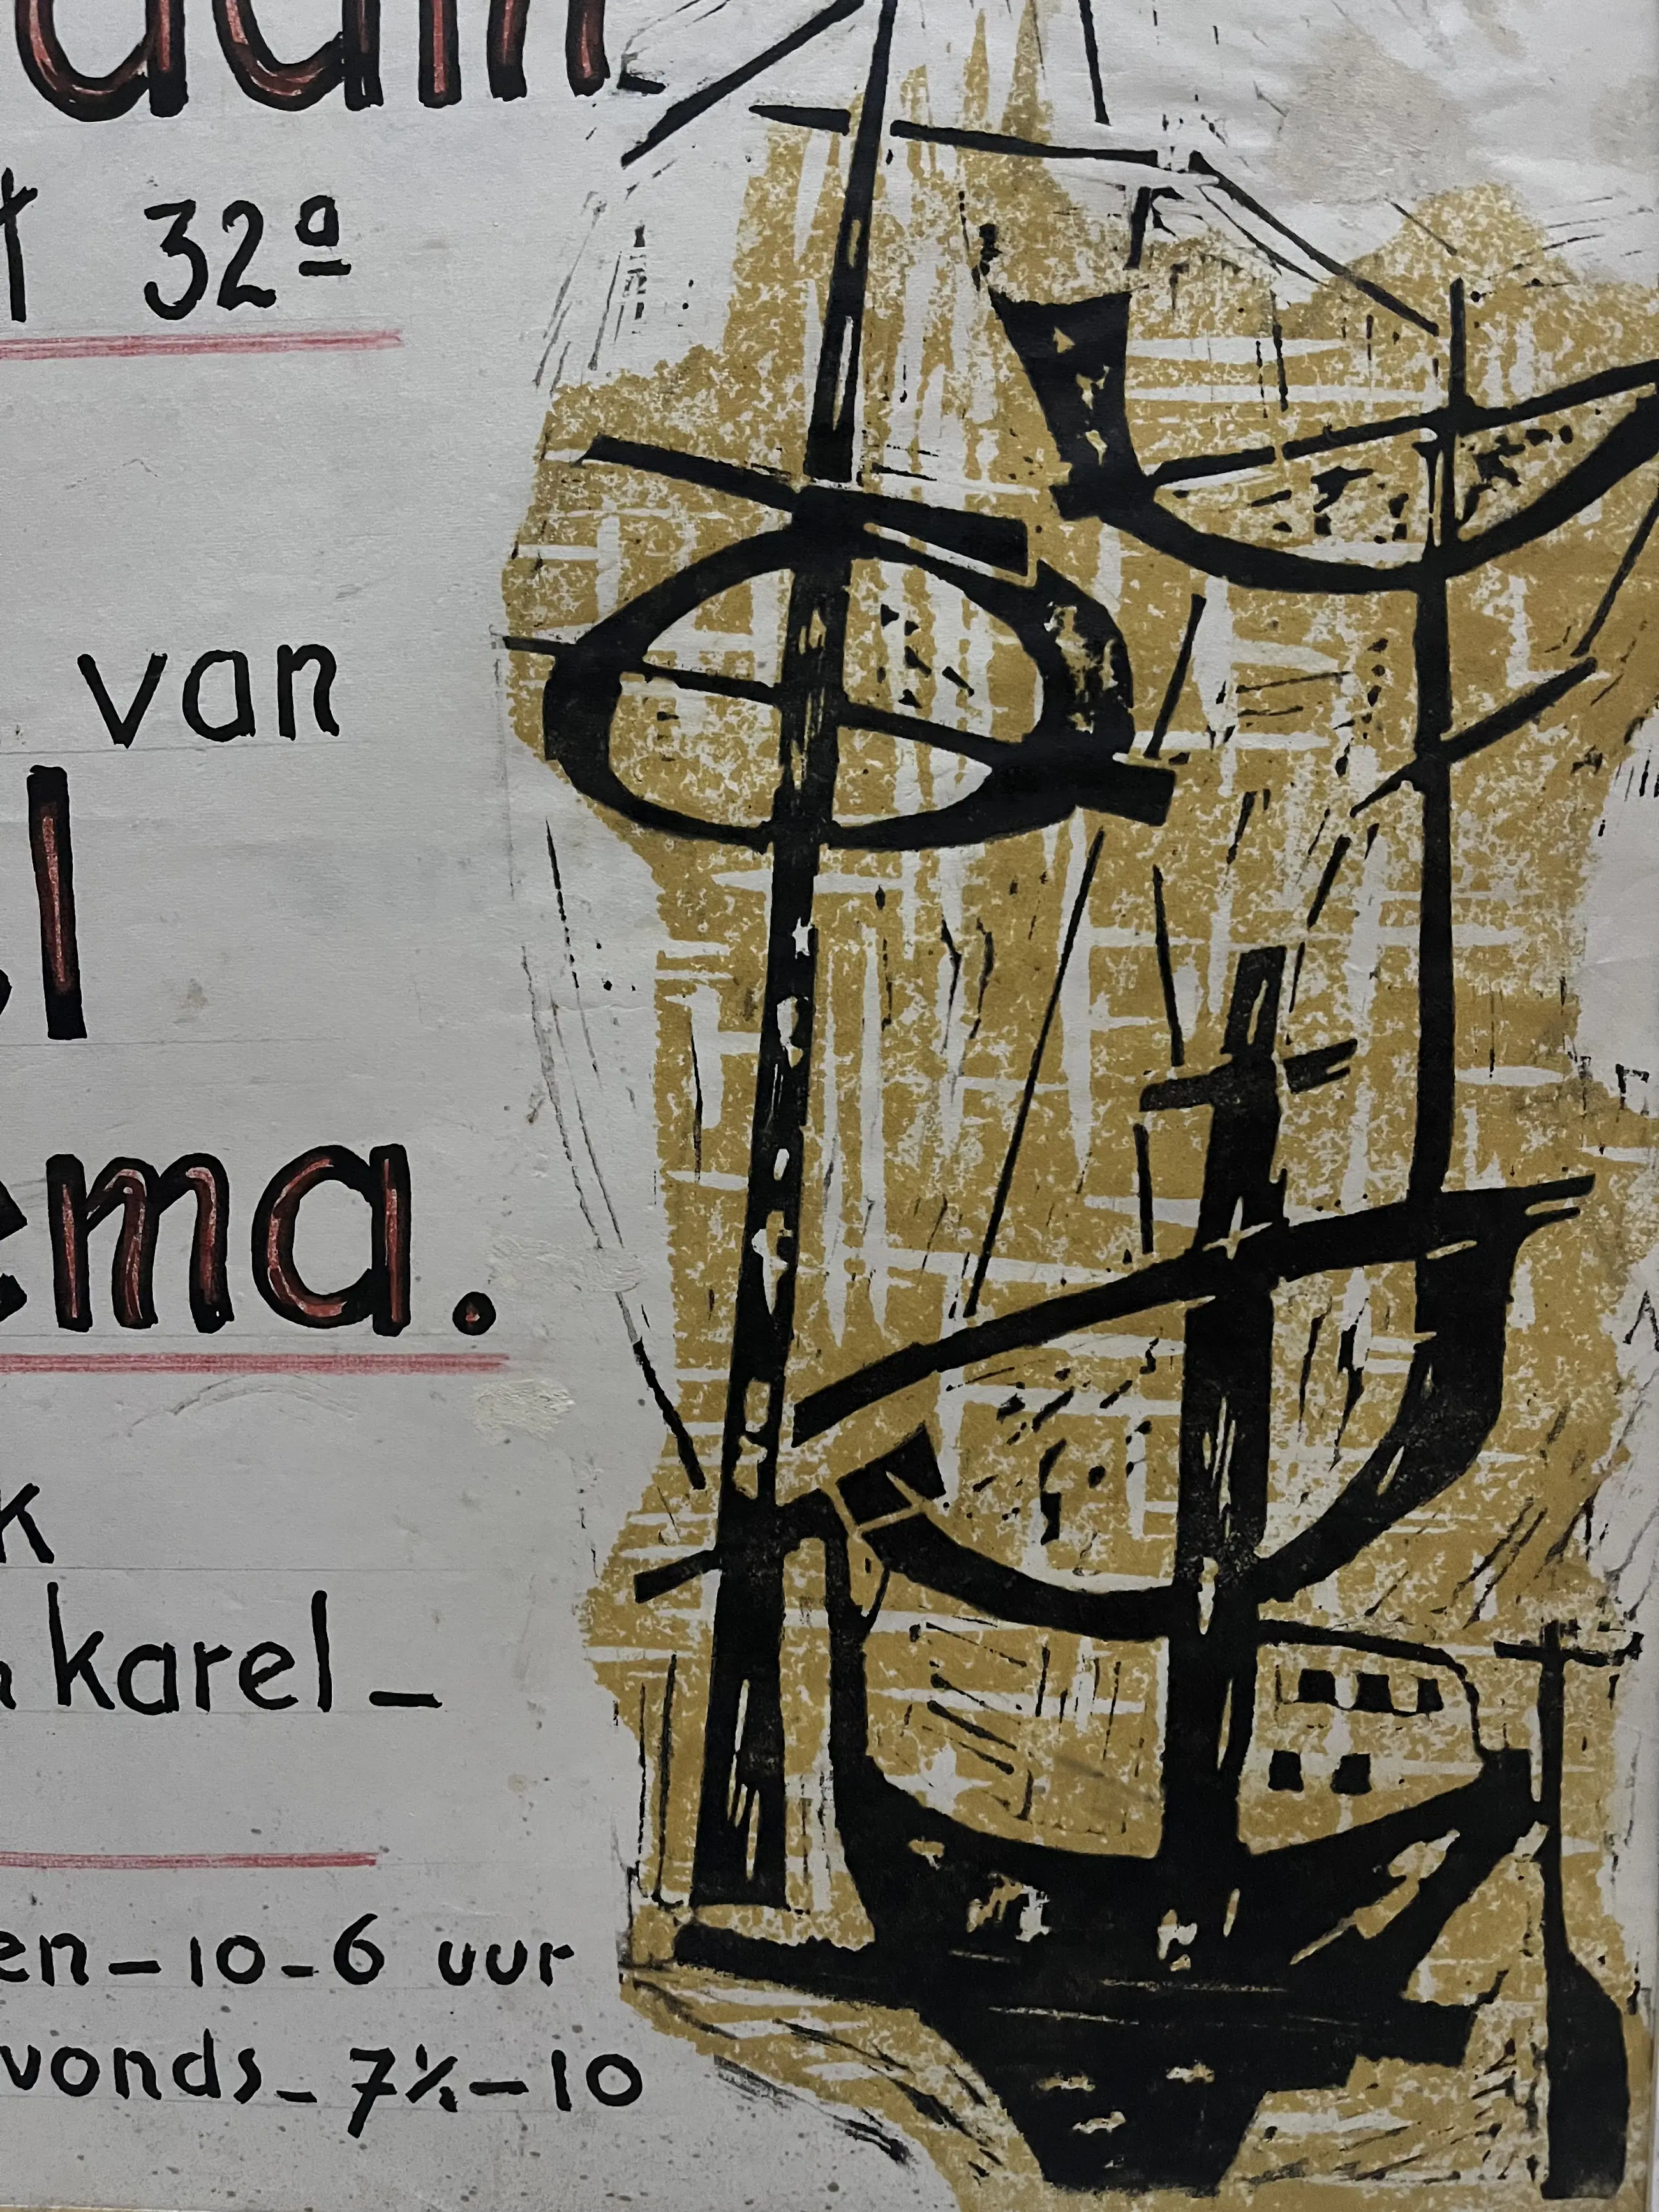 dam
t 32a
van
l
ema.
k
karel –
en – 10 – 6 uur
vonds – 7½ – 10